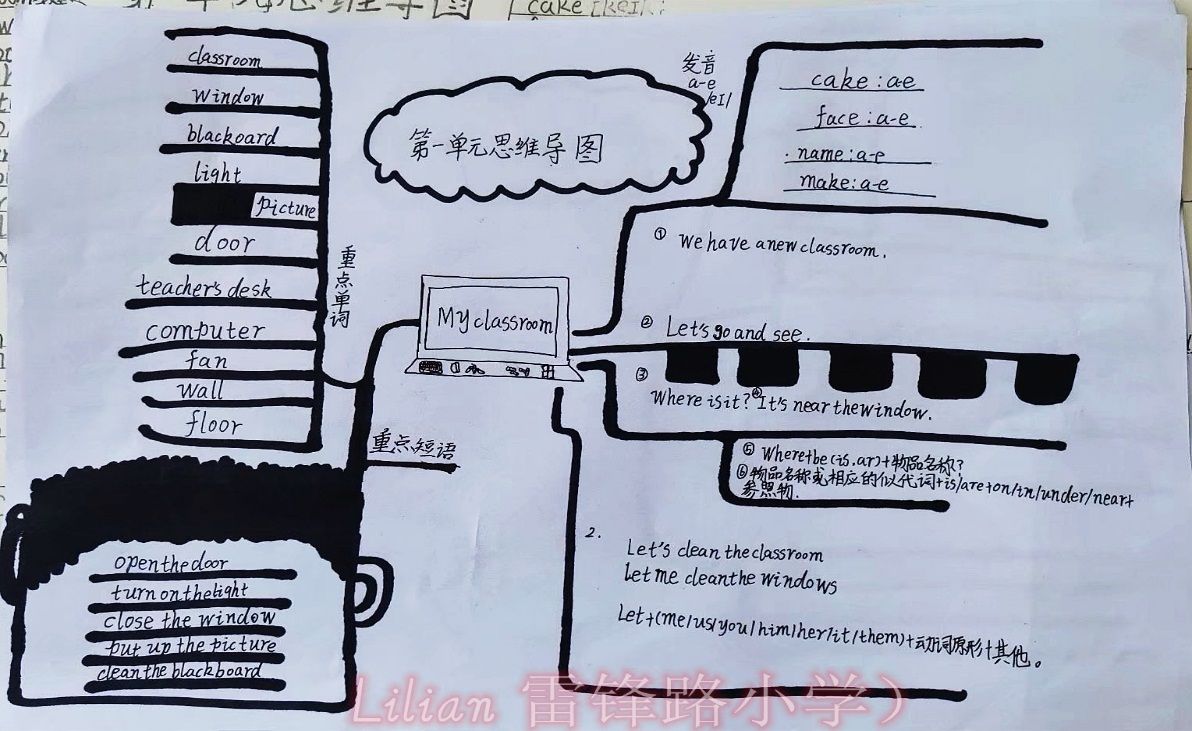 cake [keik]
第一单元思维导图
classroom
window
blackoard
light
picture
door
teacher's desk
computer
fan
wall
floor
重点单词
重点短语
open the door
turn on the light
close the window
put up the picture
clean the blackboard
My classroom
发音
a-e
/eI/
cake:a-e
face:a-e
name:a-e
make:a-e
① We have a new classroom.
② Let's go and see.
③
Where is it? ④It's near the window.
⑤ Where+be(is.ar)+物品名称?
⑥物品名称或相应的代词+is/are+on/in/under/near+
参照物.
2.
Let's clean the classroom
Let me clean the windows
Let+(me/us/you/him/her/it/them)+动词原形+其他。
Lilian 雷锋路小学）